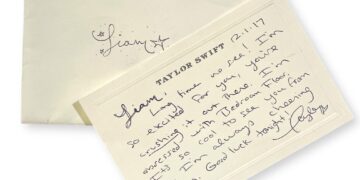 Liam
TAYLOR SWIFT
12.1.17
Liam,
Long time no see! I'm
so excited for you, you're
crushing it out there. I'm
obsessed with Bedroom Floor.
It's so cool to see you from
I'm always cheering
Good luck tonight!
Taylor